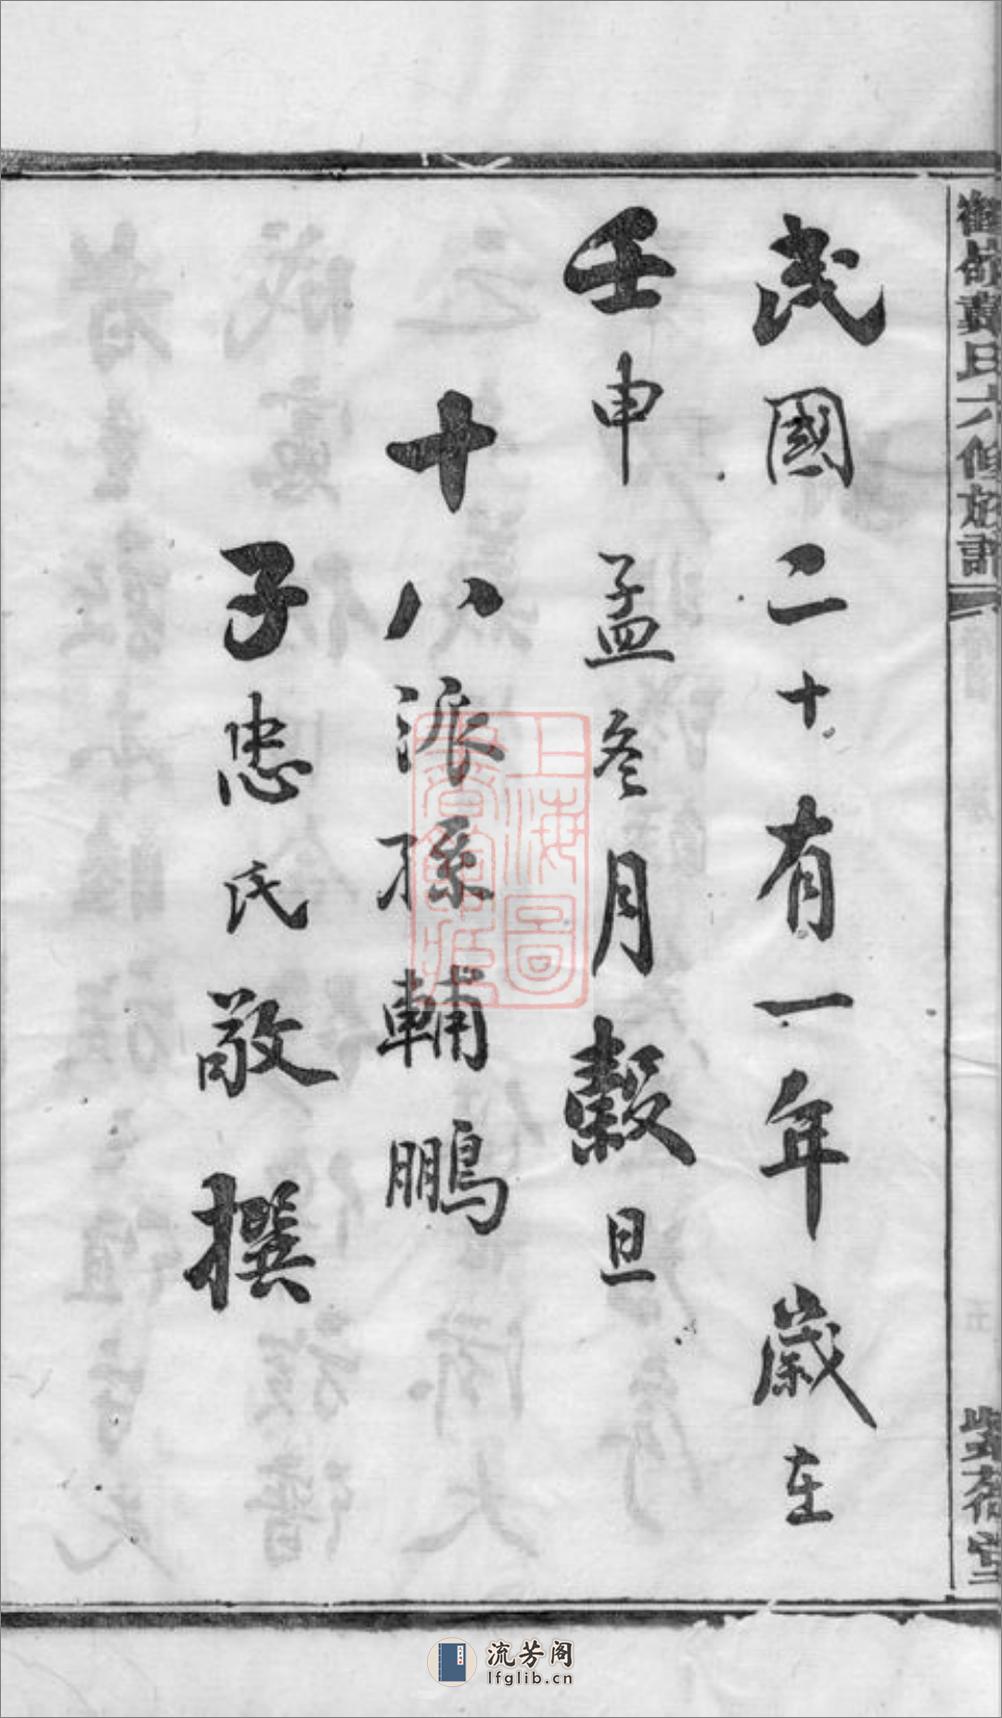 民國二十有一年歲在
壬申孟冬月穀旦
十八派孫輔鵬
子忠氏敬撰
黃氏六修族譜
紫荷堂
上海圖
流芳阁
lfglib.cn